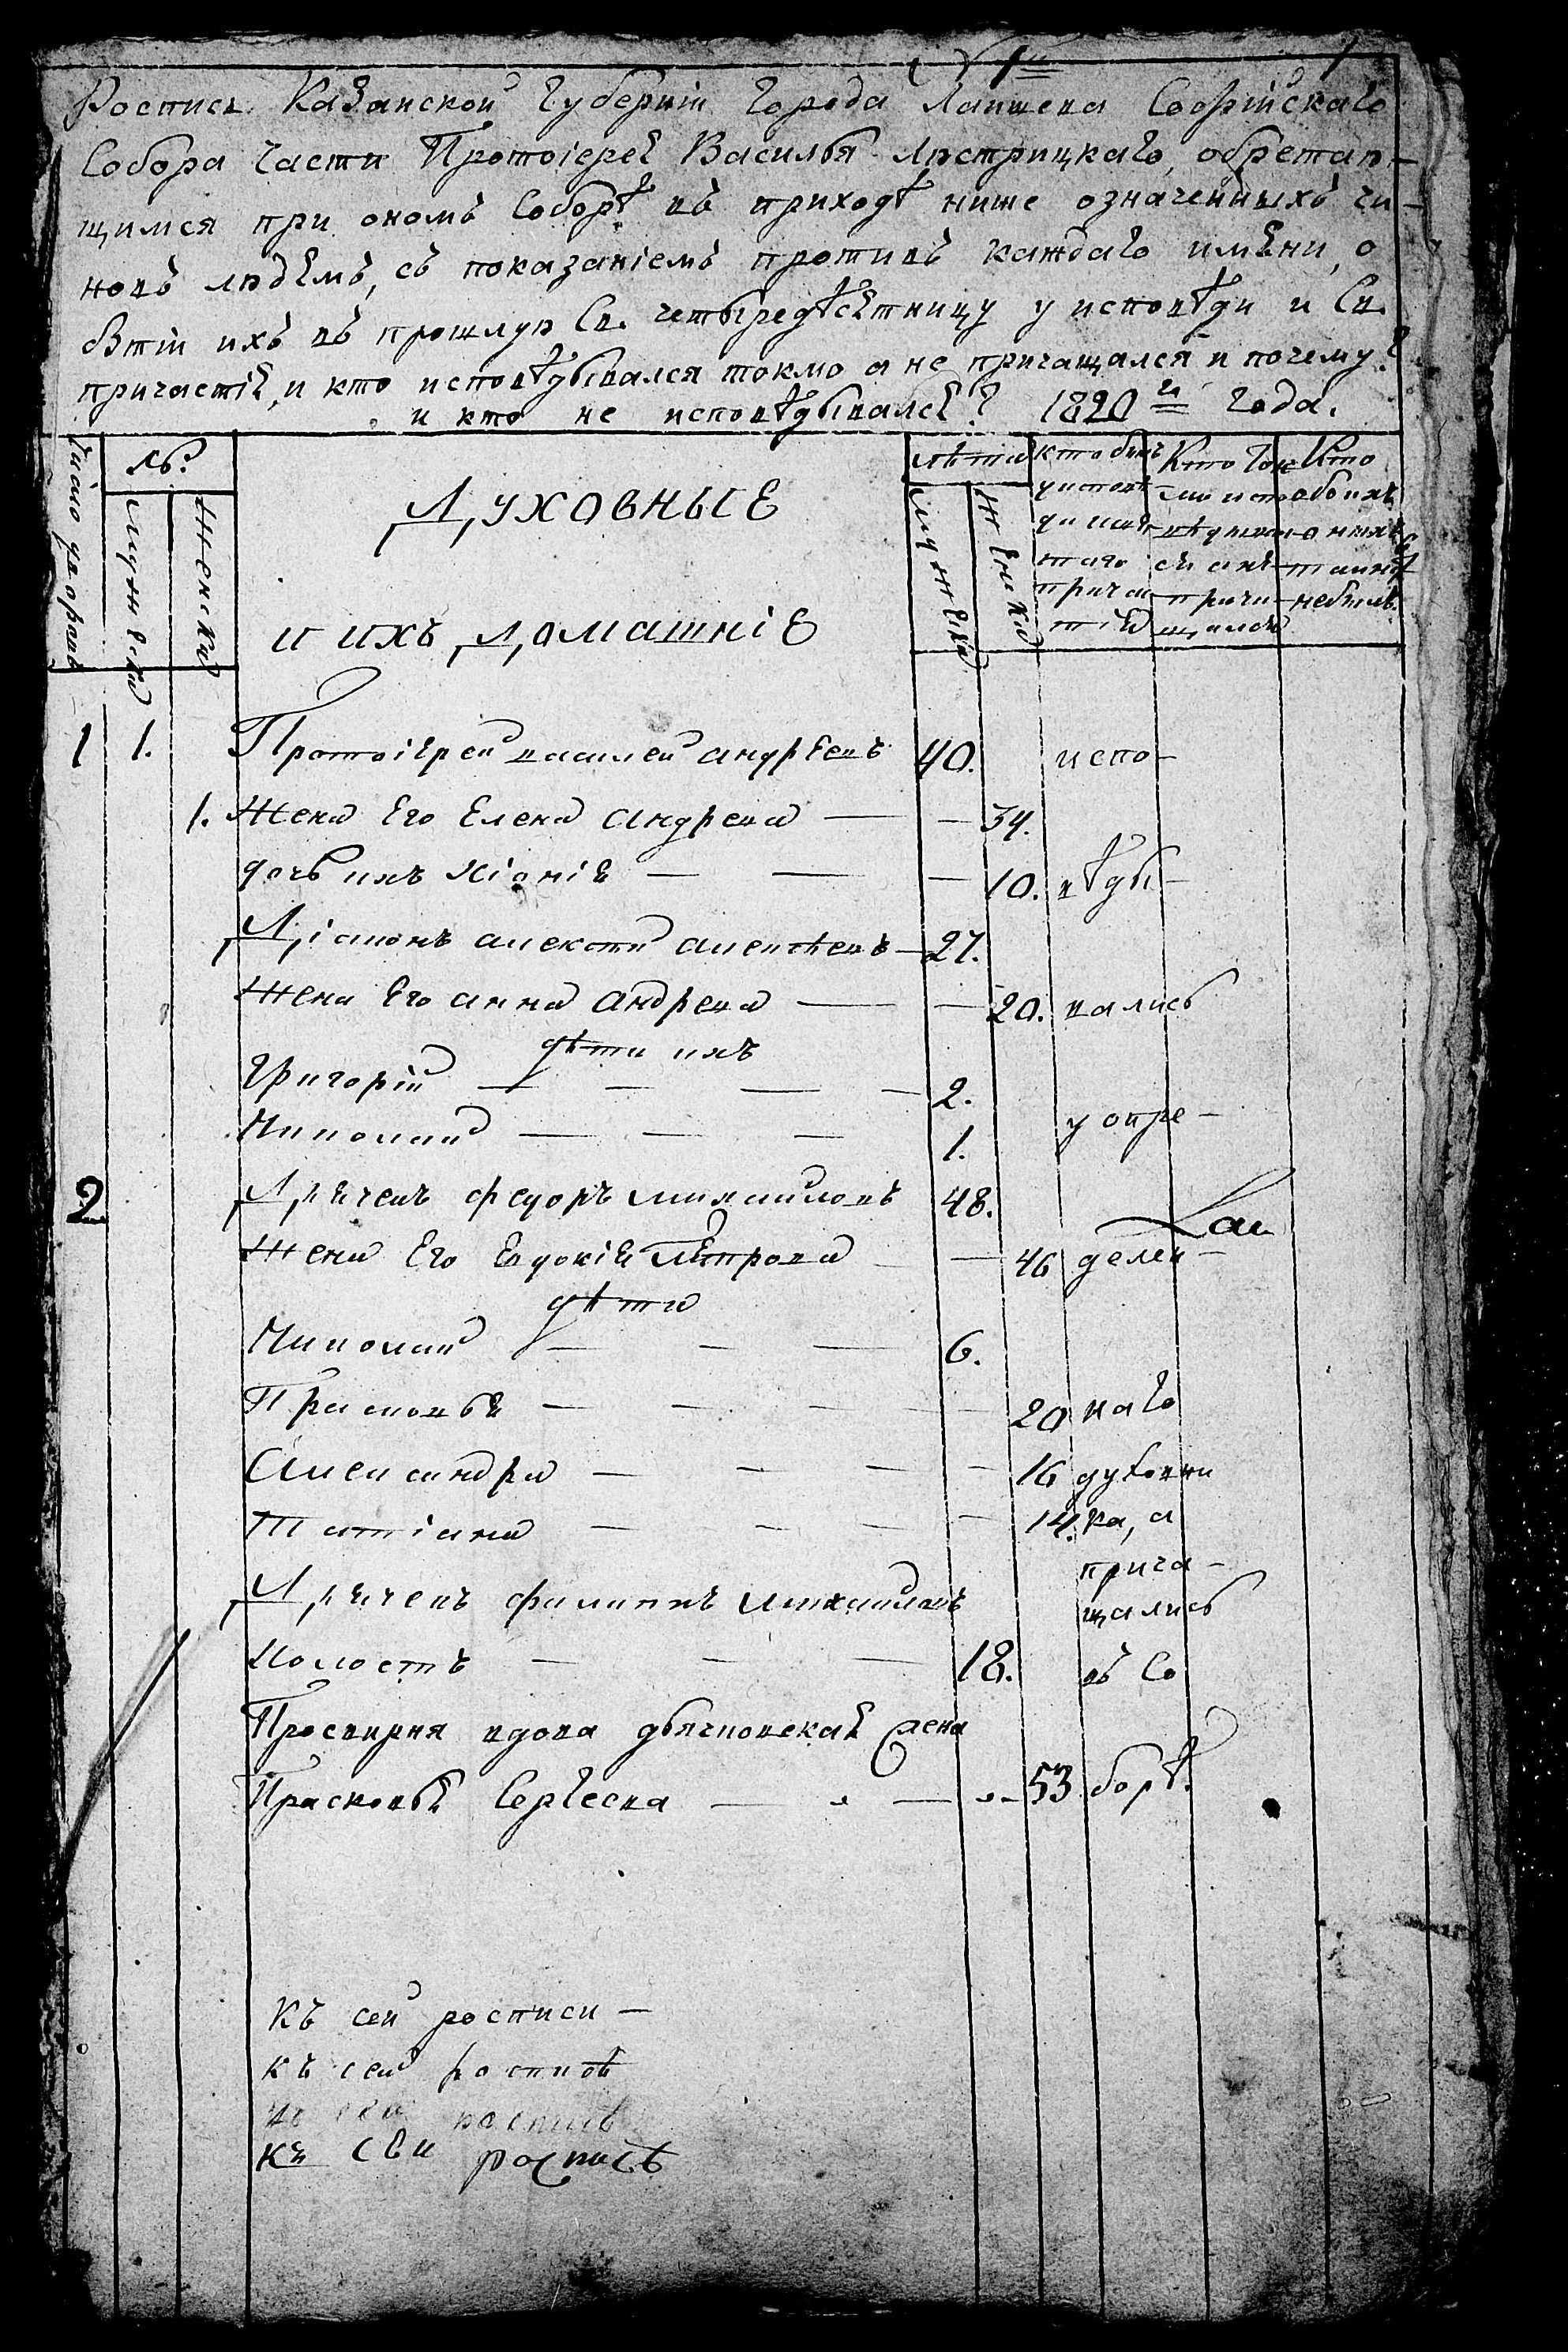 Роспись Казанской Губерніи Города Лаишева Софрійскаго
Собора части Протоіерея Василья Лѣстрицкаго, обретаю-
щимся при ономъ Соборѣ въ приходѣ ниже означенныхъ чи-
новъ людемъ, съ показаніемъ противъ каждаго имени, о
бытіи ихъ въ прошлую Св. четыредесѣтницу у исповѣди и Св.
причастія, и кто исповѣдывался токмо а не причащался и почему?
и кто не исповѣдывался? 1820 и Года.
Число дворовъ
№
Мужеска
Женска
Духовные
и ихъ домашніе
лѣта
Мужеска
Женска
кто былъ
у испове
ди и свя
таго
прича
стія
Кто Токмо
испо
вѣдыва
ся а не
прича
щался
Кто
обоихъ
оныхъ
таинъ
небылъ
1 1. Протоіерей василей андреевъ 40. испо-
1. Жена Его Елена андреева — — 34.
дочь ихъ хіонія — — — 10. вѣды-
Діаконъ алексѣй алексѣевъ — 27.
Жена Его анна андреева — — 20. вались
дѣти ихъ
Григорій — — — — 2.
Николай — — — 1. у опре-
2 Дьячекъ федоръ михайловъ 48.
Жена Его Евдокія Петрова — 46 делен-
дѣти
Николай — — — 6.
Прасковья — — — — 20 наго
Александра — — — — 16 духовни
Татіана — — — — 14. ка, а
прича-
Дьячекъ филиппъ михайловъ щались
Холостъ — — — 18. въ Со
Просвирня вдова дьячковская жена
Прасковья Сергеева — — 53 борѣ.
Къ сей росписи —
къ сей росписѣ
къ сей росписѣ